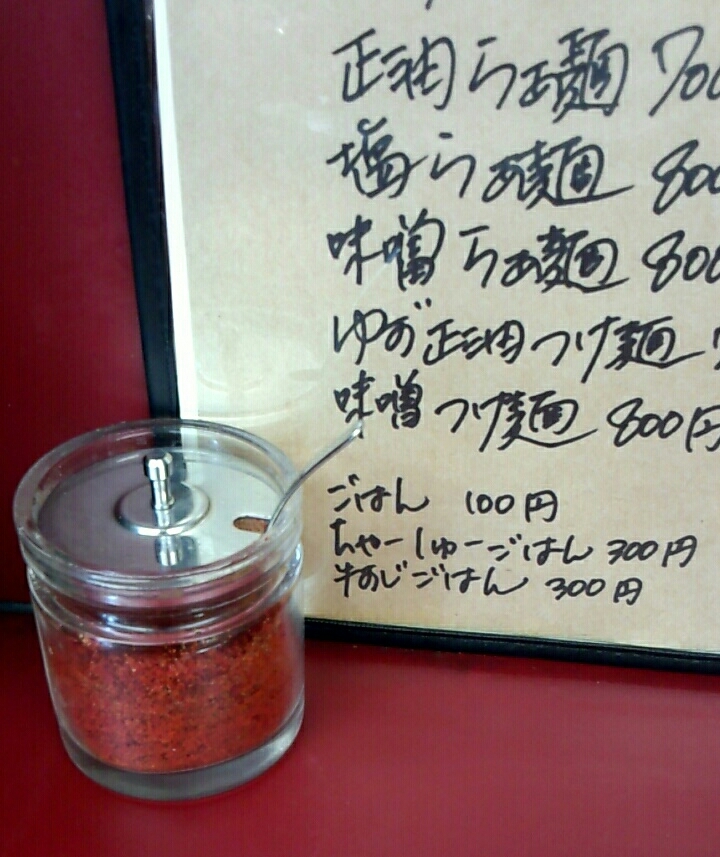 正油らぁ麺 700
塩らぁ麺 800
味噌らぁ麺 800
ゆず正油つけ麺
味噌つけ麺 800円
ごはん 100円
ちゃーしゅーごはん 300円
牛すじごはん 300円